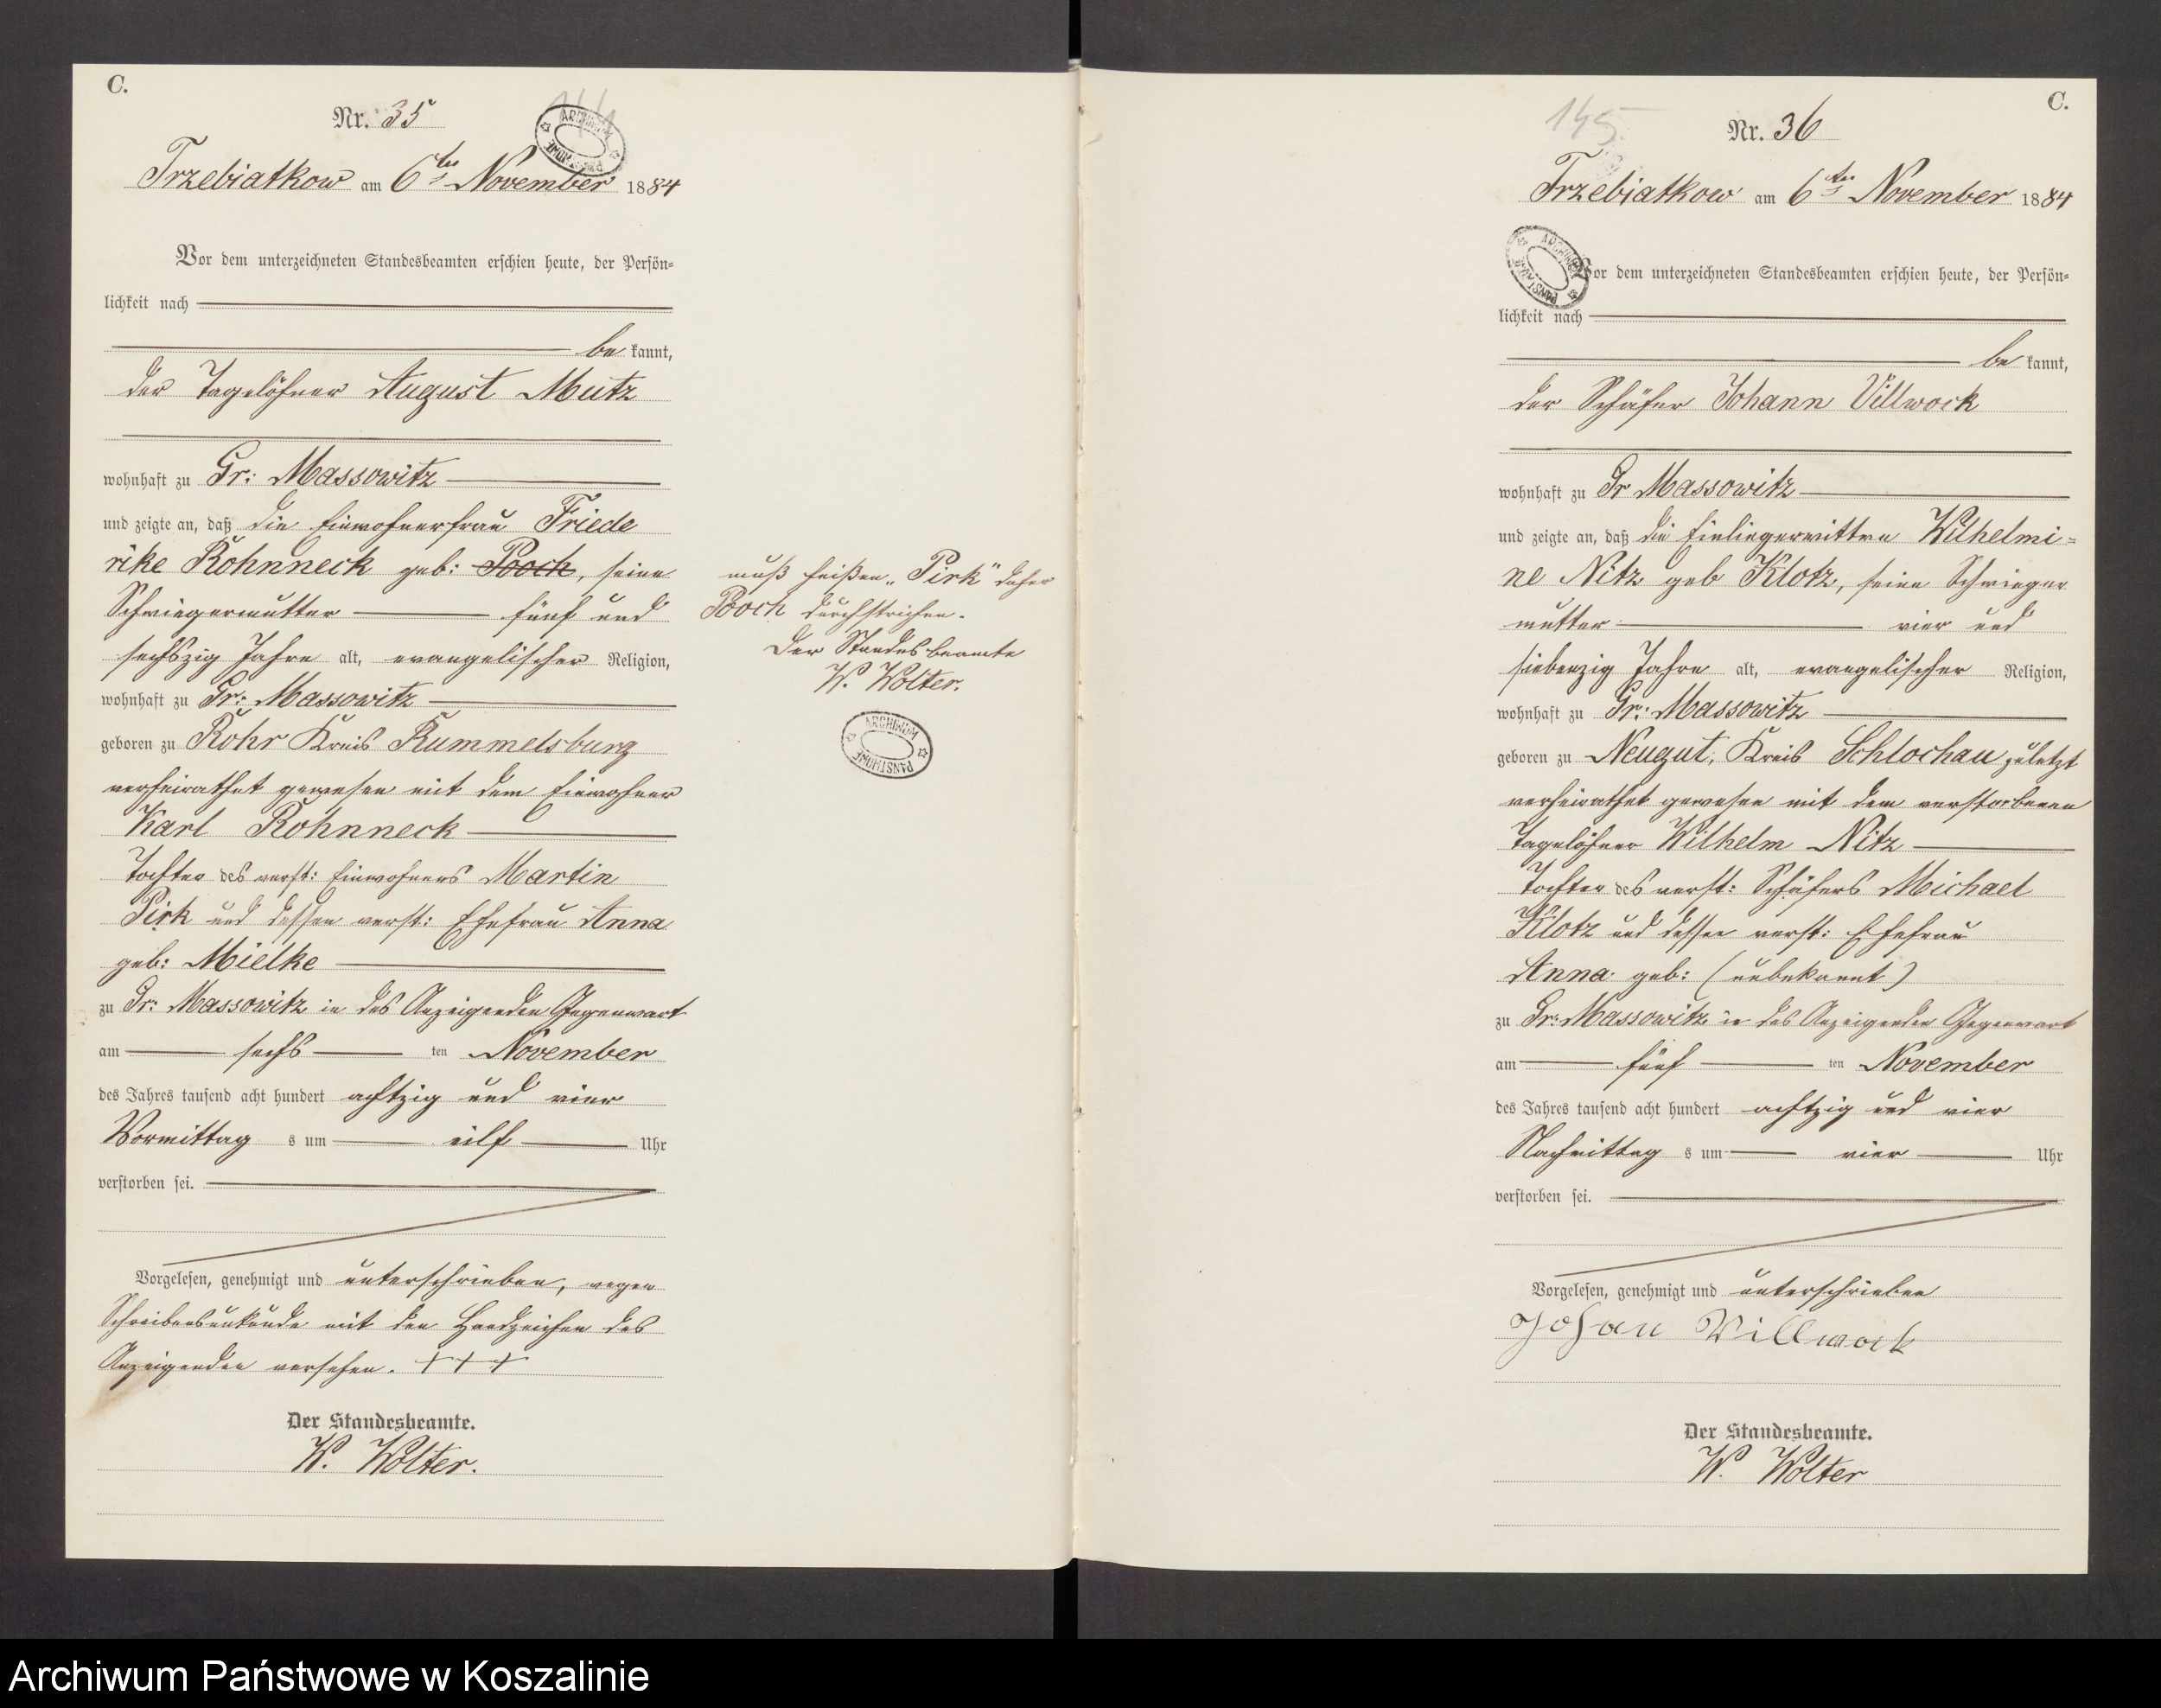 C.
Nr. 35
144
ARCHIWUM PAŃSTWOWE
Trzebiatkow am 6ten November 1884
Vor dem unterzeichneten Standesbeamten erschien heute, der Persön=
lichkeit nach
be kannt,
der Tagelöhner August Mutz
wohnhaft zu Gr: Massowitz
und zeigte an, daß die Einwohnerfrau Friede
rike Rohnneck geb: Pooch, seine
Schwiegermutter fünf und
sechszig Jahre alt, evangelischer Religion,
wohnhaft zu Gr: Massowitz
geboren zu Rohr Kreis Rummelsburg
verheirathet gewesen mit dem Einwohner
Karl Rohnneck
Tochter des verst: Einwohners Martin
Pirk und dessen verst: Ehefrau Anna
geb: Mielke
zu Gr: Massowitz in des Anzeigenden Gegenwart
am sechs ten November
des Jahres tausend acht hundert achtzig und vier
Vormittag s um eilf Uhr
verstorben sei.
Vorgelesen, genehmigt und unterschrieben, wegen
Schreibensunkunde mit den Handzeichen des
Anzeigenden versehen. + + +
Der Standesbeamte.
W. Wolter.
muß heißen „Pirk" daher
Pooch durchstrichen.
Der Standesbeamte
W. Wolter.
ARCHIWUM PAŃSTWOWE
C.
145
Nr. 36
Trzebiatkow am 6ten November 1884
ARCHIWUM PAŃSTWOWE
Vor dem unterzeichneten Standesbeamten erschien heute, der Persön=
lichkeit nach
be kannt,
der Schäfer Johann Villwock
wohnhaft zu Gr Massowitz
und zeigte an, daß die Einliegerwittwe Wilhelmi=
ne Nitz geb Klotz, seine Schwieger
mutter vier und
siebenzig Jahre alt, evangelischer Religion,
wohnhaft zu Gr: Massowitz
geboren zu Neugut, Kreis Schlochau zuletzt
verheirathet gewesen mit dem verstorbenen
Tagelöhner Wilhelm Nitz
Tochter des verst: Schäfers Michael
Klotz und dessen verst: Ehefrau
Anna geb: (unbekannt)
zu Gr: Massowitz in des Anzeigenden Gegenwart
am fünf ten November
des Jahres tausend acht hundert achtzig und vier
Nachmittag s um vier Uhr
verstorben sei.
Vorgelesen, genehmigt und unterschrieben
Johan Villwock
Der Standesbeamte.
W. Wolter
Archiwum Państwowe w Koszalinie